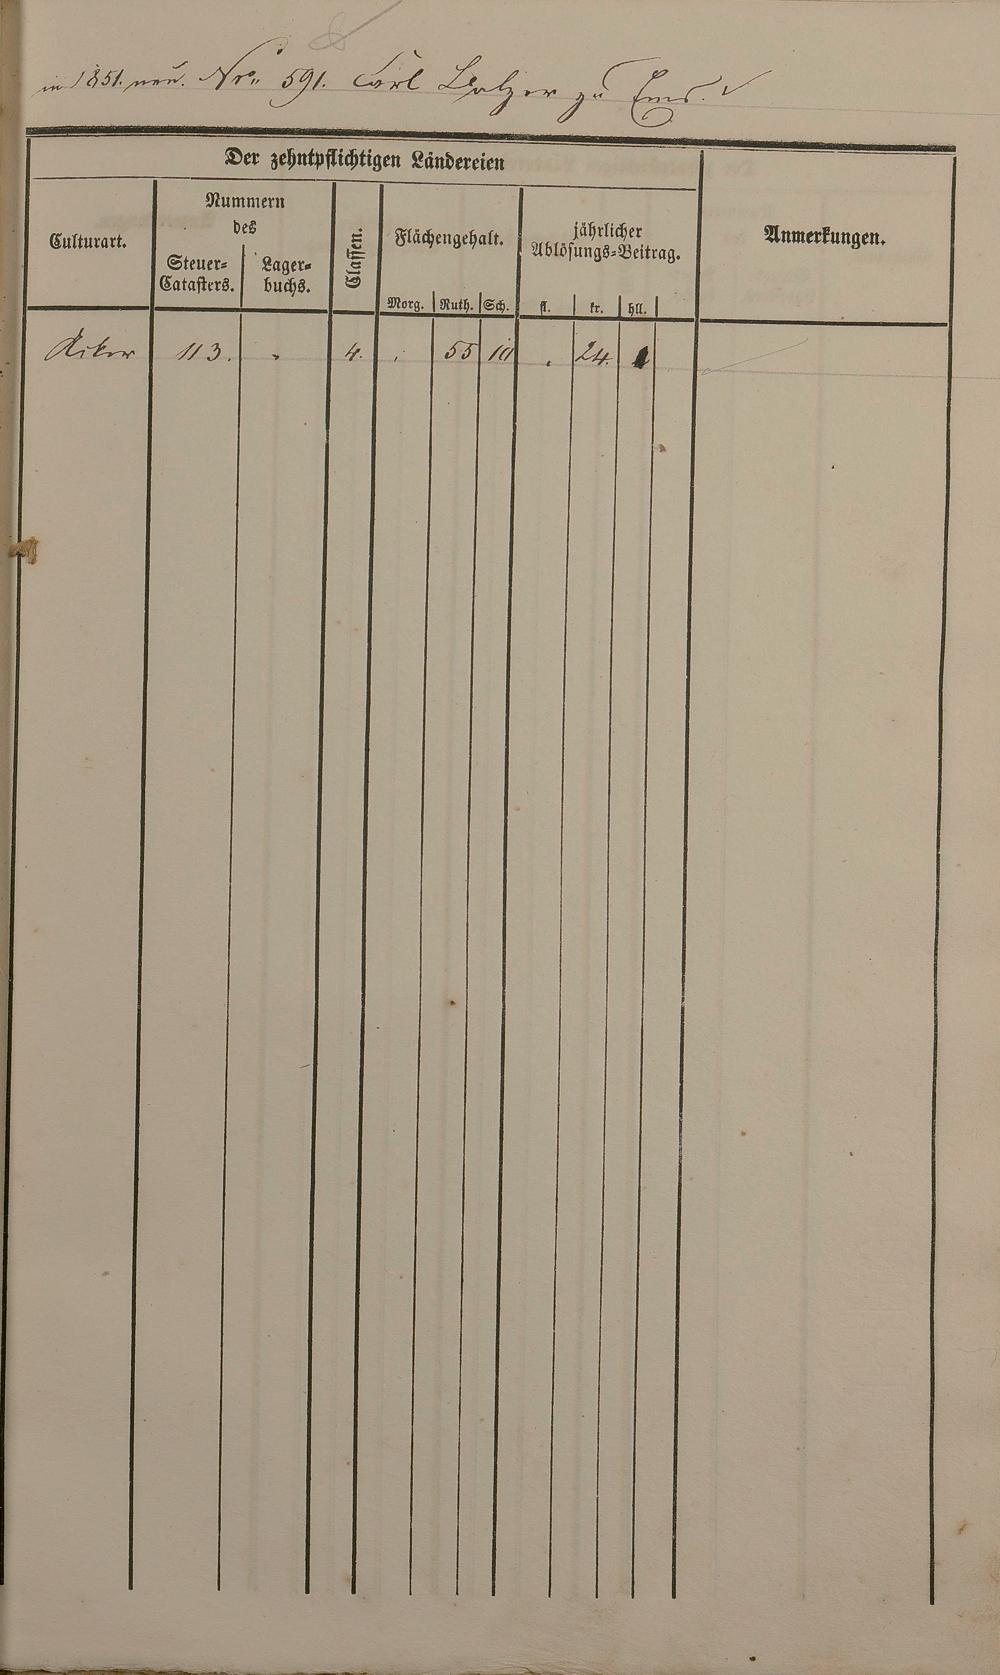 in 1851. neu. Nro. 591. Carl Balzer zu Ems.
Der zehntpflichtigen Ländereien
Culturart.
Nummern
des
Steuer-
Catasters.
Lager-
buchs.
Classen.
Flächengehalt.
Morg. Ruth. Sch.
jährlicher
Ablösungs-Beitrag.
fl. kr. hll.
Anmerkungen.
Acker 113. " 4. . 55 10 . 24.